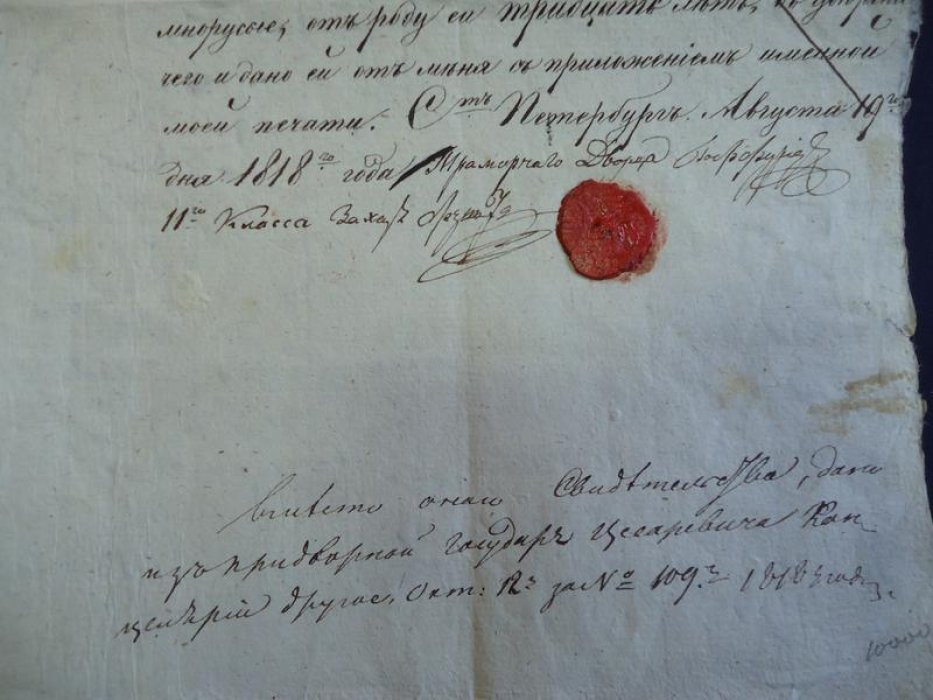 отъ роду ей тридцать лѣтъ, въ увѣрении
чего и дано ей отъ меня съ приложеніемъ именной
моей печати. Стъ Петербургъ. Августа 19го
дня 1818го года Мраморнаго Дворца
11го Класса Захаръ
Вместо онаго Свидѣтельства, дано
изъ придворной Государя Цесаревича Кан
целяріи другое, Окт: 12го за № 109.м 1818 года.
10000